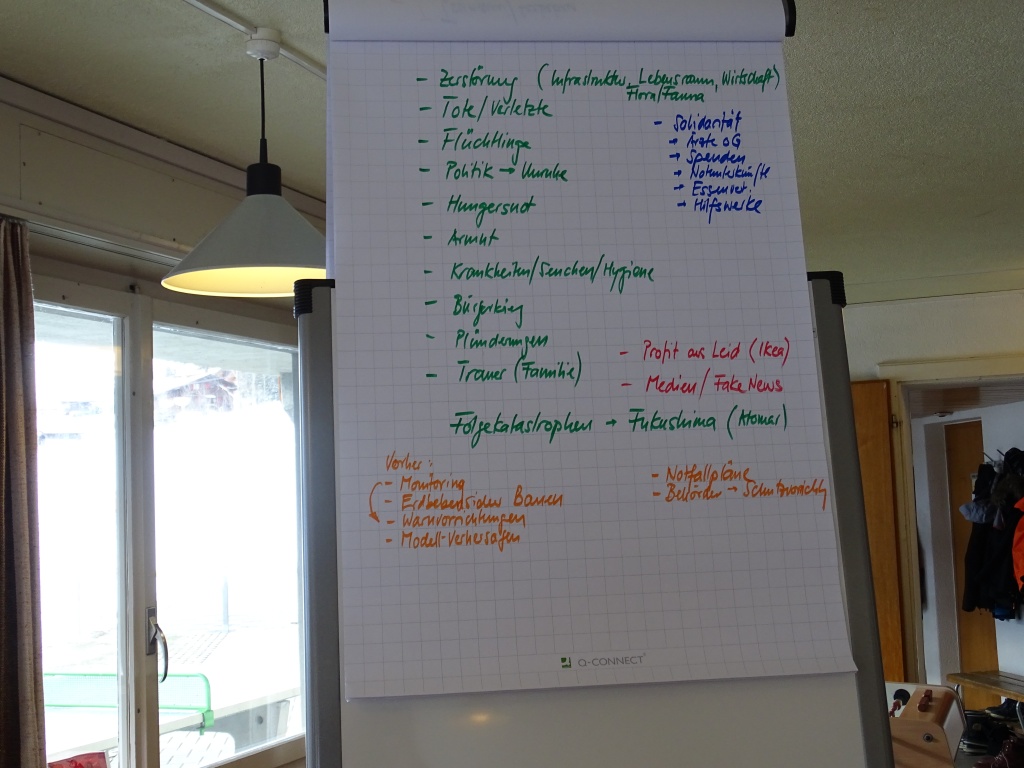 - Zerstörung (Infrastruktur, Lebensraum, Wirtschaft)
Flora/Fauna
- Tote/Verletzte
- Flüchtlinge
- Politik → Unruhe
- Hungersnot
- Armut
- Krankheiten/Seuchen/Hygiene
- Bürgerkrieg
- Plünderungen
- Trauer (Familie)
Folgekatastrophen → Fukushima (Atomar)
- Solidarität
→ Ärzte oG
→ Spenden
→ Notunterkünfte
→ Essenver.
→ Hilfswerke
- Profit aus Leid (Ikea)
- Medien/Fake News
Vorher:
- Monitoring
- Erdbebensicher Bauen
- Warnvorrichtungen
- Modell-Verhersagen
- Notfallpläne
- Behörden → Schutzvorrichtg
Q-CONNECT